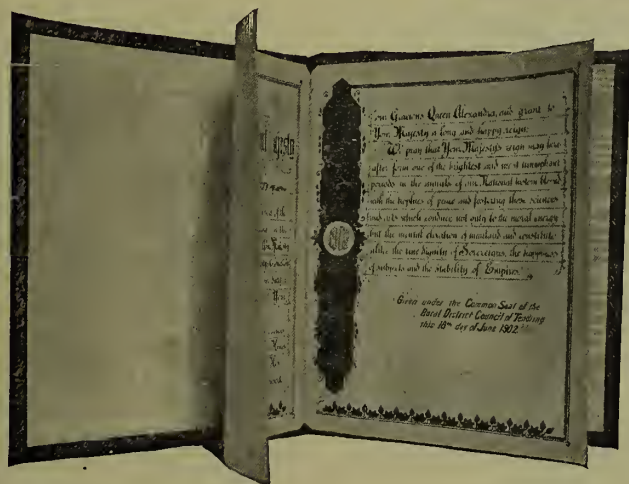 Your Gracious Queen Alexandra, and grant to
Your Majesty a long and happy reign:
We pray that Your Majesty's reign may here
after form one of the brightest and most triumphant
periods in the annals of our National history blessed
with the trophies of peace and fostering those sciences
and arts which conduce not only to the moral energy
but the mental elevation of mankind and constitute
alike the true dignity of Sovereigns, the happiness
of subjects and the stability of Empires.
Given under the Common Seal of the
Rural District Council of Tendring
this 18th day of June 1902.